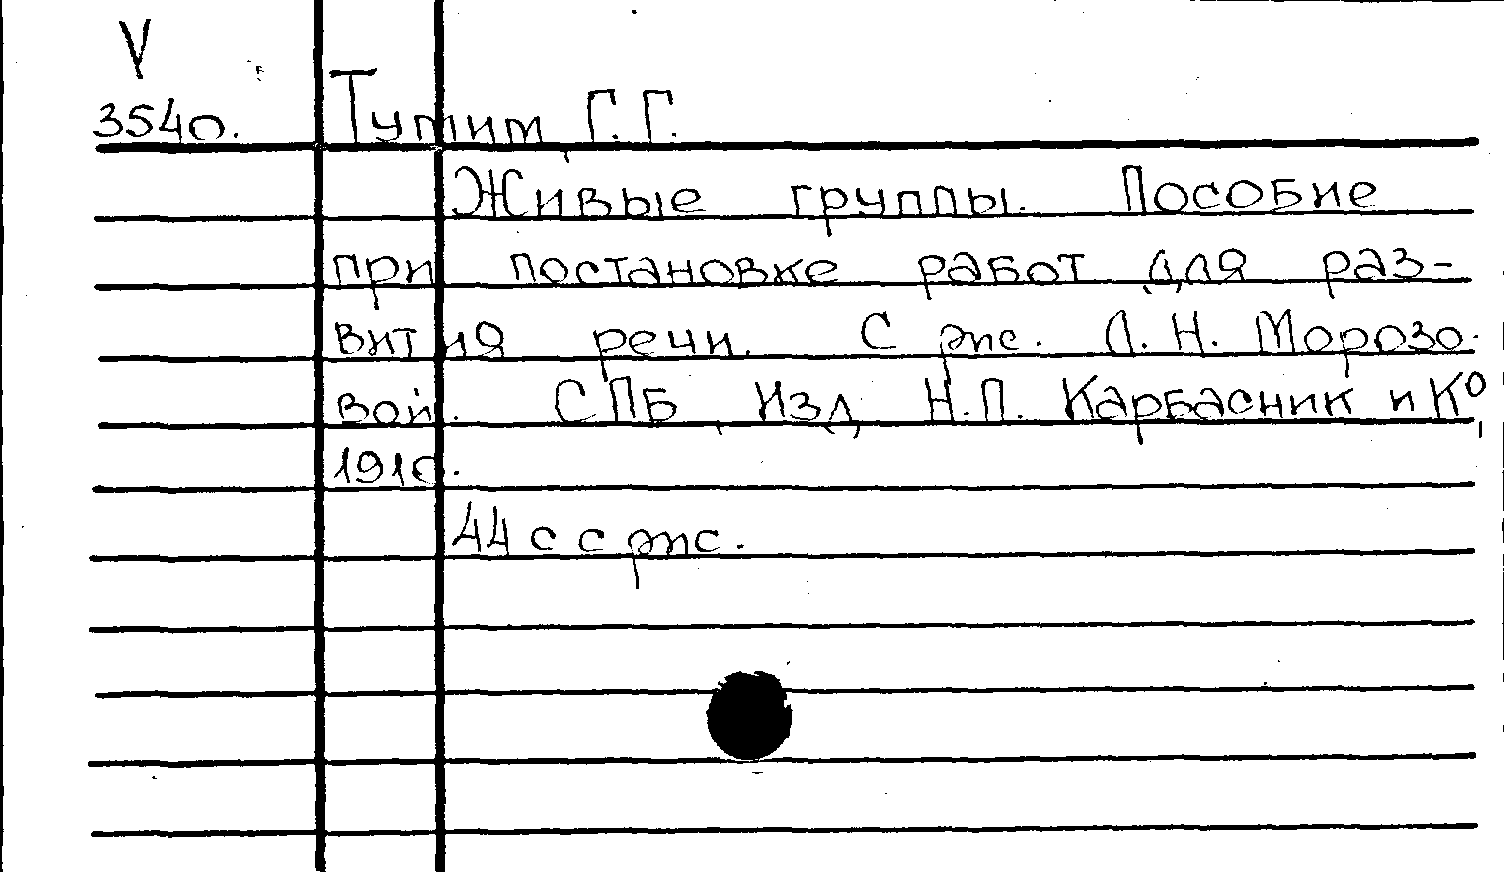 V
3540. Тумим, Г. Г.
Живые группы. Пособие
при постановке работ для раз-
вития речи. С рис. Л. Н. Морозо-
вой. СПБ, Изд, Н.П. Карбасник и К⁰,
1910.
44 с с рис.